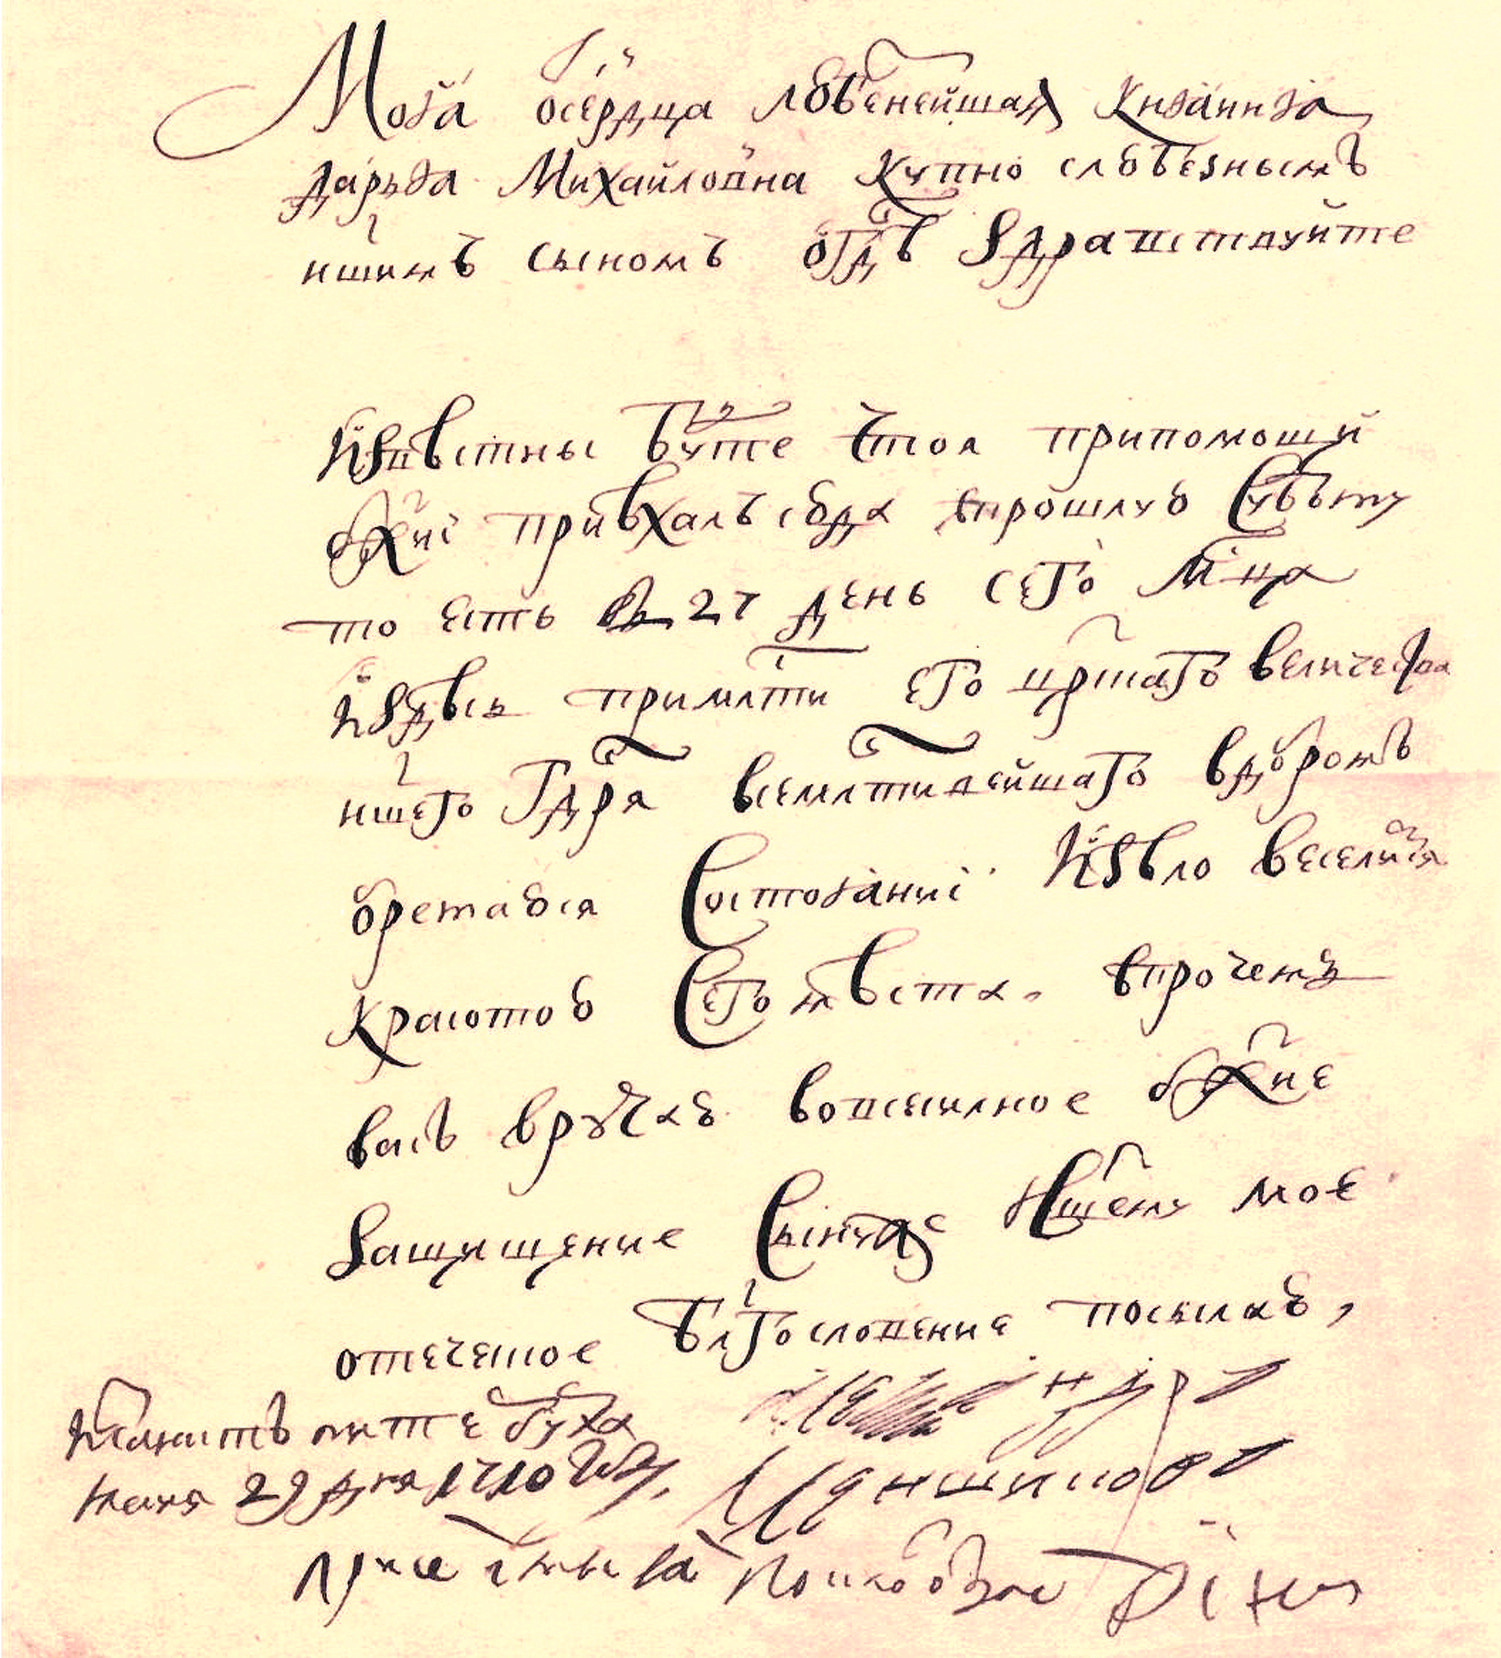 Моя осердца любѣнейшая Княгиня
дарья Михайловна купно слюбезнымъ
ншимъ сыномъ отдѣ здравствуйте
Извѣстны буте что я припомощи
бжиї приѣхалъ сюда впрошлую Субъту
то есть въ 27 день сего мца
издѣсь примлти его црскаго величества
ншего гдря всемлтивейшаго вдобромъ
обретаюся Состояниї изѣло веселится
красотою Сего мѣста, впрочемъ
васъ вручаю вовсесилное бжие
защищение Сынуже Ншему мое
отеческое блгословение посылаю,
мая 29 дня 1710 году,
Меншиковъ